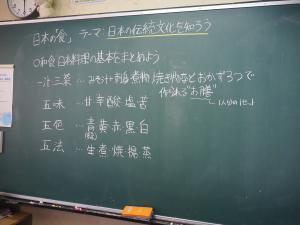 日本の「食」 テーマ:日本の伝統文化を知ろう
○和食 日本料理の基本をまとめよう
一汁三菜 … みそ汁 刺身 煮物 焼き物などおかず3つで
作られる"お膳"
1人分のセット
五味 … 甘辛酸塩苦
五色 … 青黄赤黒白
(緑)
五法 … 生煮焼揚蒸